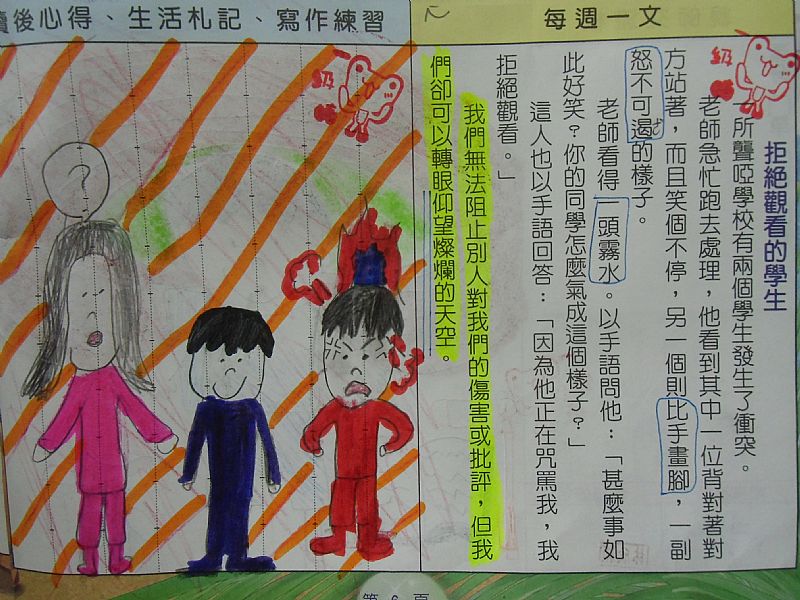 每週一文
拒絕觀看的學生
一所聾啞學校有兩個學生發生了衝突。
老師急忙跑去處理，他看到其中一位背對著對
方站著，而且笑個不停，另一個則比手畫腳，一副
怒不可遏的樣子。
老師看得一頭霧水。以手語問他：「甚麼事如
此好笑？你的同學怎麼氣成這個樣子？」
這人也以手語回答：「因為他正在咒罵我，我
拒絕觀看。」
我們無法阻止別人對我們的傷害或批評，但我
們卻可以轉眼仰望燦爛的天空。
讀後心得、生活札記、寫作練習
?
第 6 頁